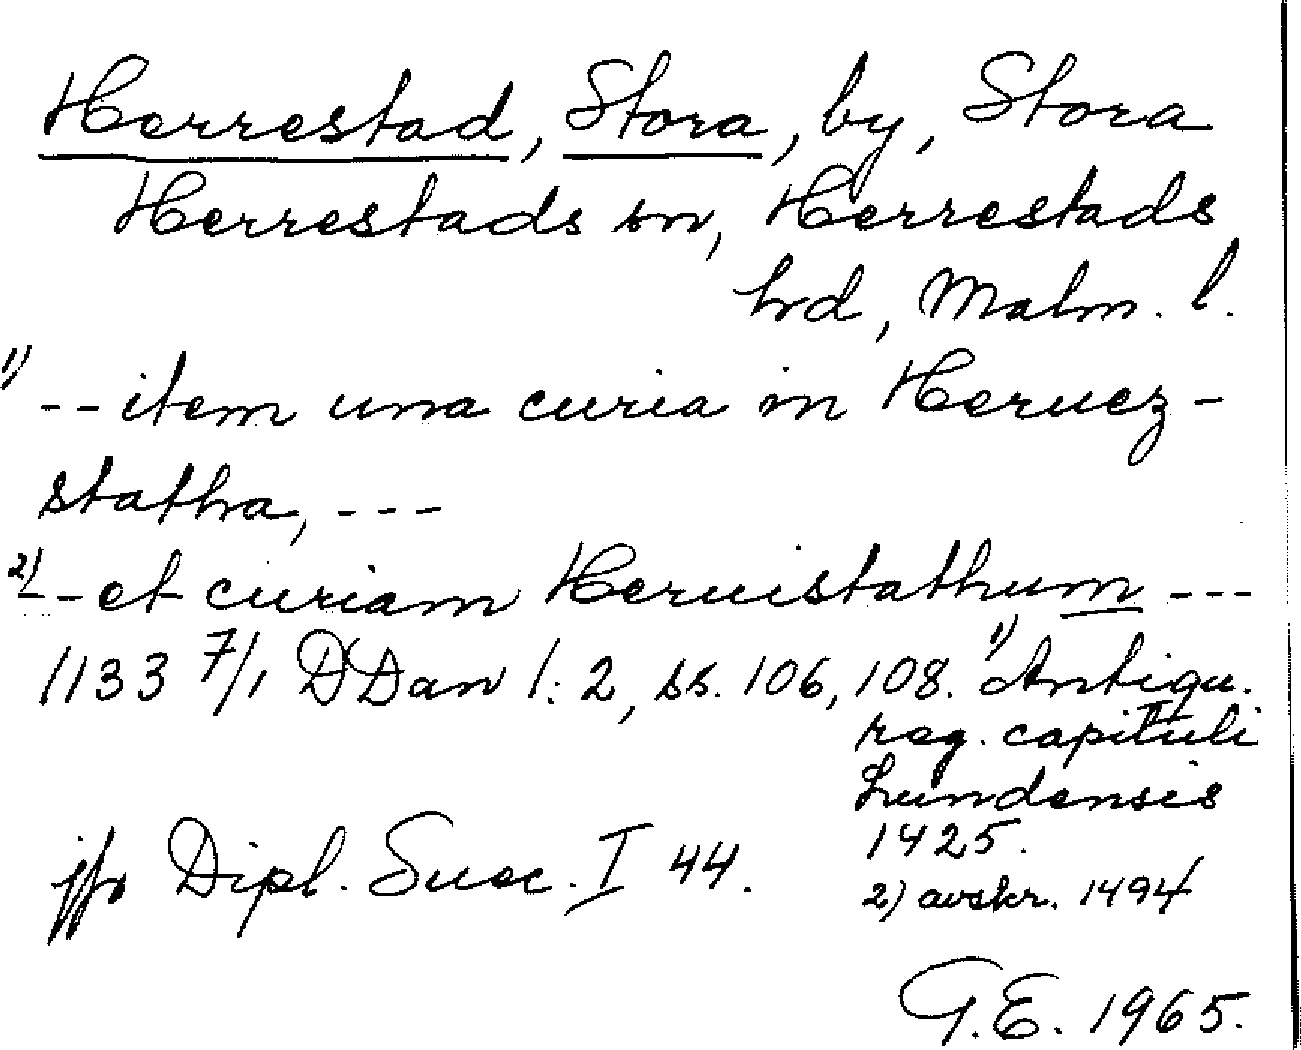 Herrestad, Stora, by, Stora
Herrestads sn, Herrestads
hrd, Malm. l.
1) -- item una curia in Heruez-
statha, ---
2) -- et curiam Heruistathum ---
1133 7/1 DDan 1:2, ss. 106, 108. 1) Antiqu.
reg. capituli
Lundensis
1425.
jfr Dipl. Suec. I 44.
2) avskr. 1494
G.E. 1965.